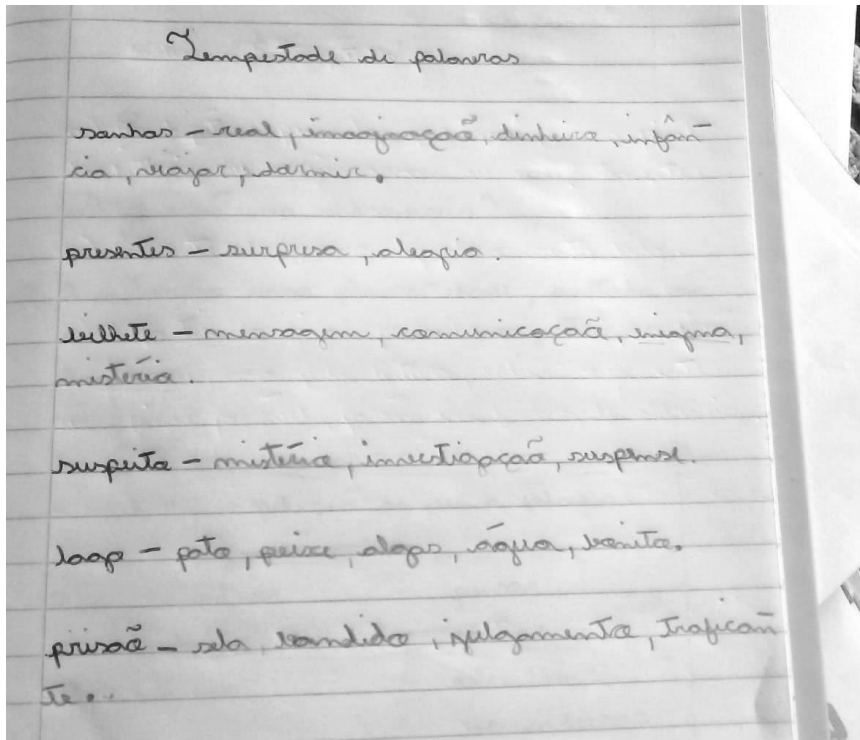 Tempestade de palavras
sonhos - real, imaginação, dinheiro, infân-
cia, viajar, dormir.
presentes - surpresa, alegria.
bilhete - mensagem, comunicação, enigma,
mistério.
suspeito - mistério, investigação, suspense.
lago - pato, peixe, algas, água, bonito.
prisão - sela, bandido, julgamento, trafican-
te.